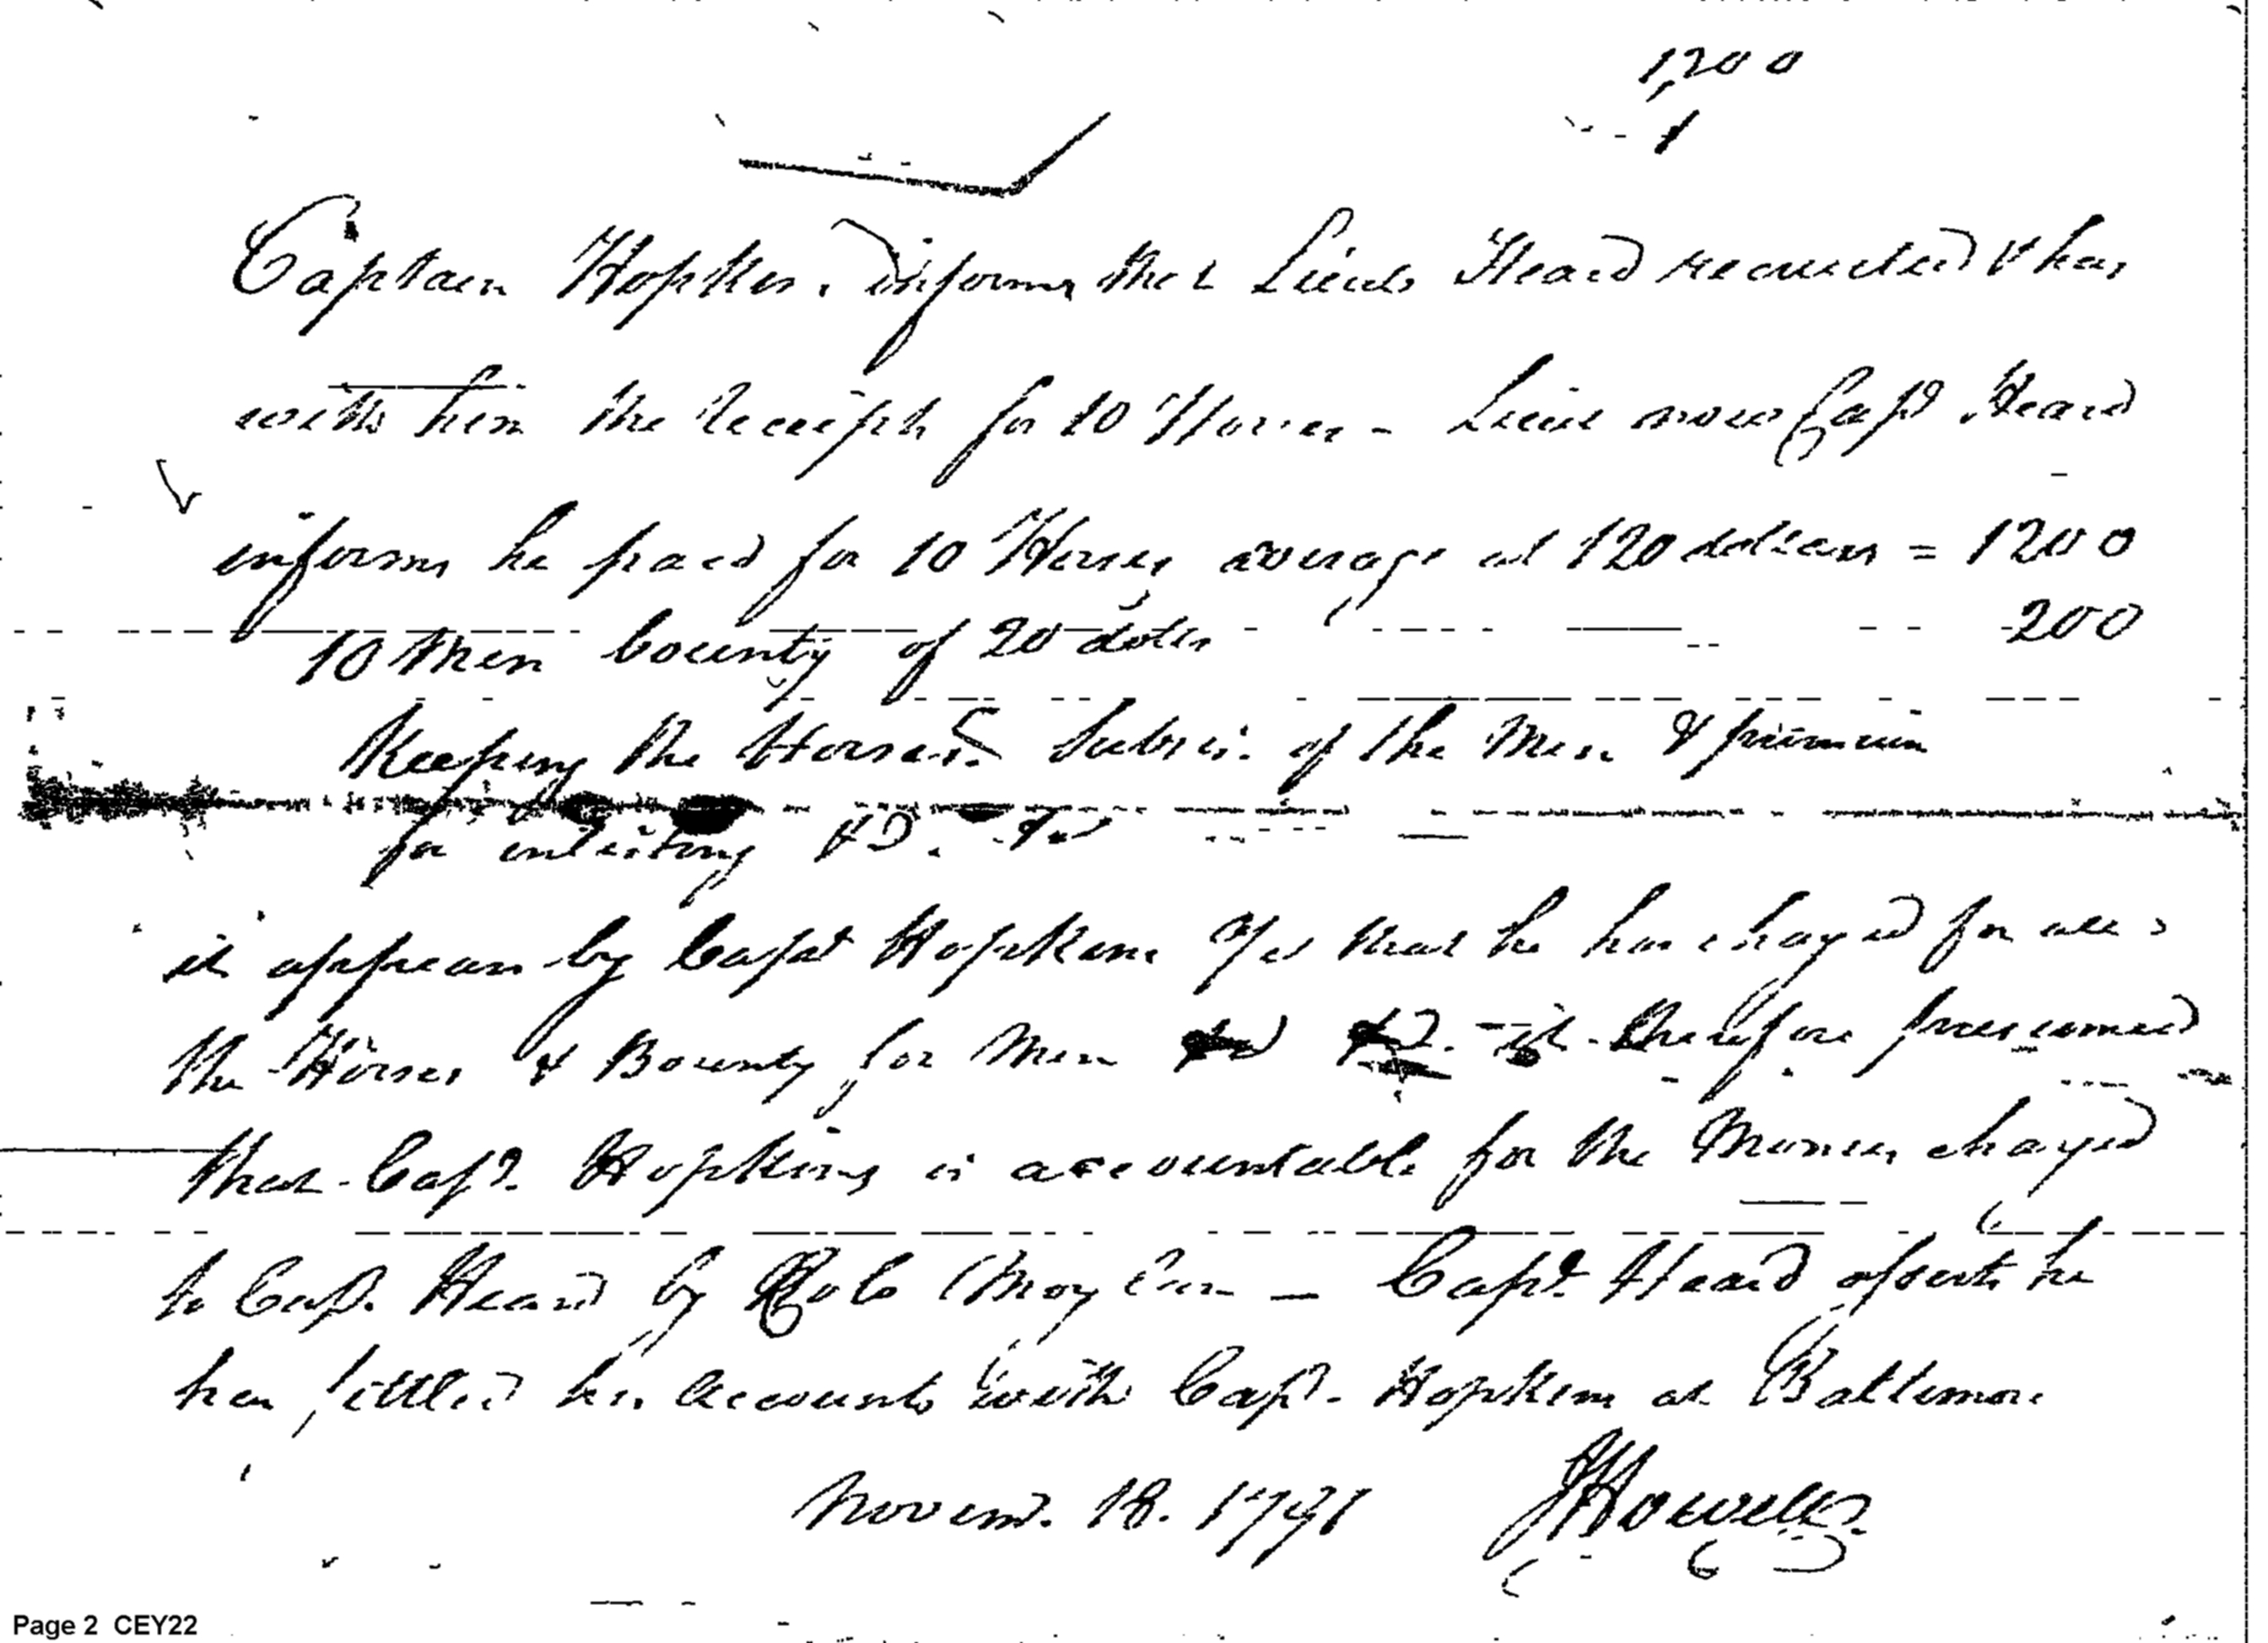 1200
1
Captain Hopkins informs that Lieut Heard recruited & has
with him the receipts for 10 Horses - Lieut now Capt Heard
informs he paid for 10 Horses average at 120 dollars = 1200
10 Men bounty of 20 dolls 200
Keeping the Horses. Subsis. of the Men & premium
for enlisting
it appears by Capt Hopkins that he has charged for all
the Horses & Bounty for Men it therefore presumed
that Capt. Hopkins is accountable for the Monies charged
to Capt. Heard by Colo Moylan - Capt. Heard asserts he
has settled his accounts with Capt. Hopkins at Baltimore
Novem. 18. 1791 JHowell
Page 2 CEY22